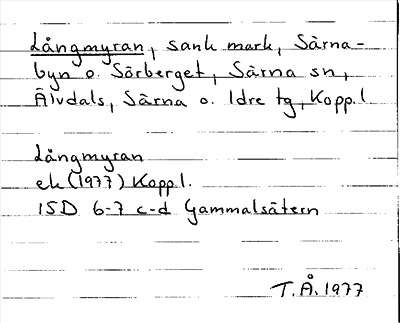 Långmyran, sank mark, Särna-
byn o. Sörberget, Särna sn,
Älvdals, Särna o. Idre tg, Kopp.l.
Långmyran
ek (1977) Kopp.l.
15D 6-7 c-d Gammalsätern
T.Å. 1977